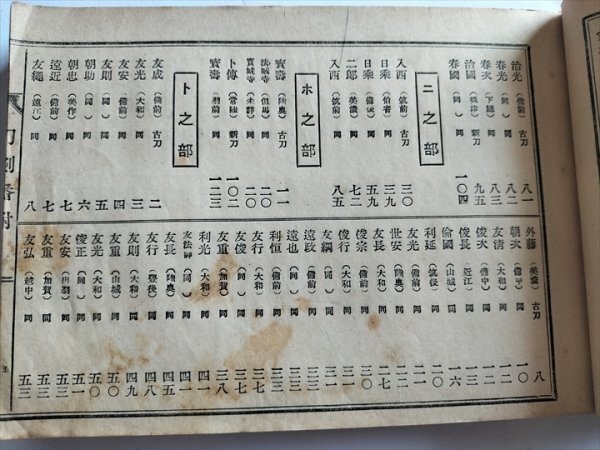 治光 (備前) 古刀 八一
春光 (同) 同 八二
春次 (下總) 同 九五
治國 (攝津) 新刀 九三
春國 (同) 同 一〇四
ニ之部
入西 (伯耆) 古刀 三〇
日乘 (備後) 同 五九
二郎 (美濃) 同 七二
入西 (筑前) 同 八五
ホ之部
寶壽 (陸奥) 古刀 一一
法城寺 (但馬) 同 二〇
寶城寺 (未詳) 同 二〇
卜傳 (常陸) 新刀 一〇二
寶壽 (羽前) 同 一二三
ト之部
友成 (備前) 古刀 二
友光 (大和) 同 三
友安 (備前) 同 四
友則 (同) 同 五
朝助 (同) 同 六
朝忠 (美作) 同 七
遠近 (備前) 同 七
友繩 (遠江) 同 八
外藤 (美濃) 古刀 八
朝次 (備中) 同 一〇
友清 (大和) 同 一一
俊次 (備中) 同 一二
俊長 (近江) 同 一三
倫國 (山城) 同 一六
利延 (筑後) 同 二一
友光 (備前) 同 二一
世安 (陸奥) 同 二二
友長 (大和) 同 二七
俊宗 (備前) 同 三〇
俊行 (大和) 同 三一
友綱 (同) 同 三二
遠政 (備前) 同 三三
遠也 (同) 同 三三
利恒 (備前) 同 三三
友行 (大和) 同 三七
友俊 (同) 同 三七
友重 (加賀) 同 三八
利光 (大和) 同 四一
友法師 (同) 同 四一
友長 (陸奥) 同 四五
友行 (豊後) 同 四八
友則 (大和) 同 四九
友重 (山城) 同 五〇
友光 (大和) 同 五〇
俊正 (同) 同 五一
友安 (出羽) 同 五三
友重 (加賀) 同 五三
友弘 (越中) 同 五三
刀劍番附
五